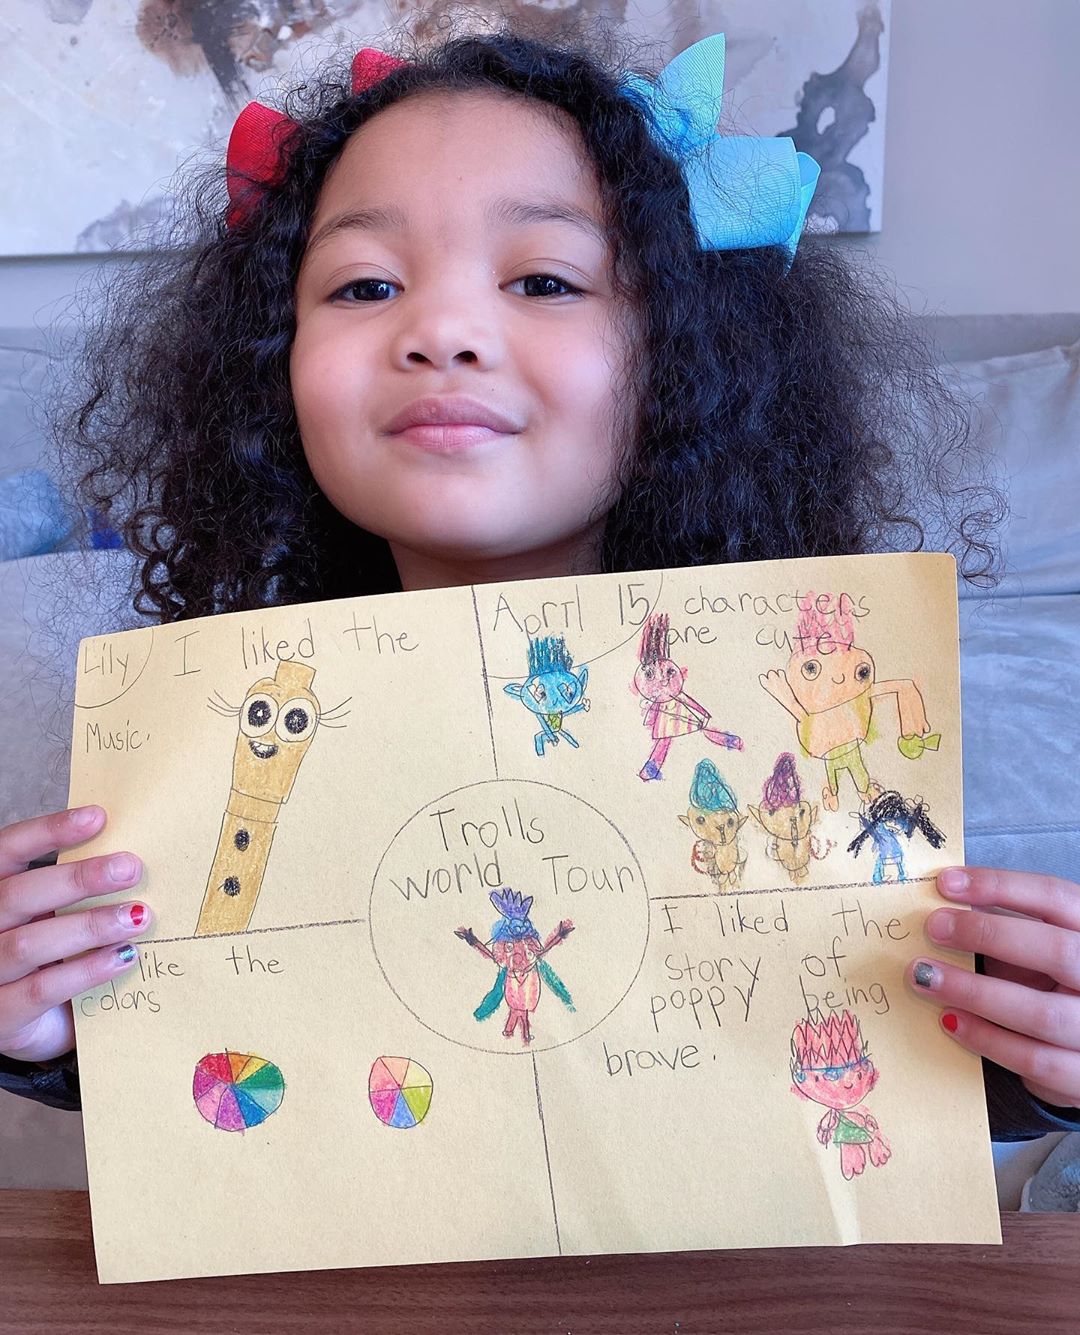 Lily
I liked the
Music.
April 15
characters
are cute
Trolls
world Tour
like the
colors
I liked the
story of
poppy being
brave.